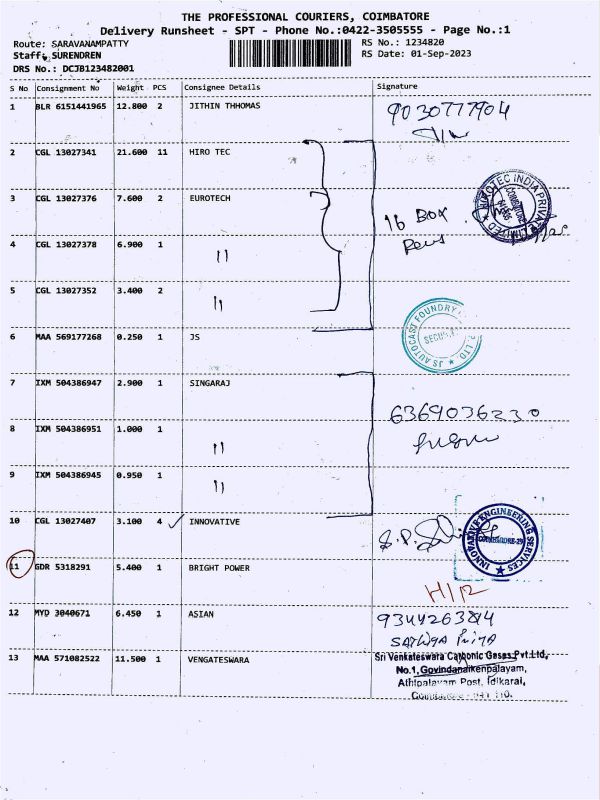 THE PROFESSIONAL COURIERS, COIMBATORE
Delivery Runsheet - SPT - Phone No.:0422-3505555 - Page No.:1
Route: SARAVANAMPATTY RS No.: 1234820
Staff: SURENDREN RS Date: 01-Sep-2023
DRS No.: DCJB123482001
S No Consignment No Weight PCS Consignee Details Signature
1 BLR 6151441965 12.800 2 JITHIN THHOMAS 9030777904
2 CGL 13027341 21.600 11 HIRO TEC
3 CGL 13027376 7.600 2 EUROTECH 16 Box
4 CGL 13027378 6.900 1 11
5 CGL 13027352 3.400 2 11
6 MAA 569177268 0.250 1 JS JS AUTOCAST FOUNDRY LTD.
7 IXM 504386947 2.900 1 SINGARAJ 6369036230
8 IXM 504386951 1.000 1 11
9 IXM 504386945 0.950 1 11
10 CGL 13027407 3.100 4 ✓ INNOVATIVE INNOVATIVE ENGINEERING SERVICES COIMBATORE-29
11 GDR 5318291 5.400 1 BRIGHT POWER
12 MYD 3040671 6.450 1 ASIAN
13 MAA 571082522 11.500 1 VENGATESWARA Sri Venkateswara Carbonic Gases Pvt.Ltd,
No.1, Govindanaikenpalayam,
Athipalayam Post, Idikarai,